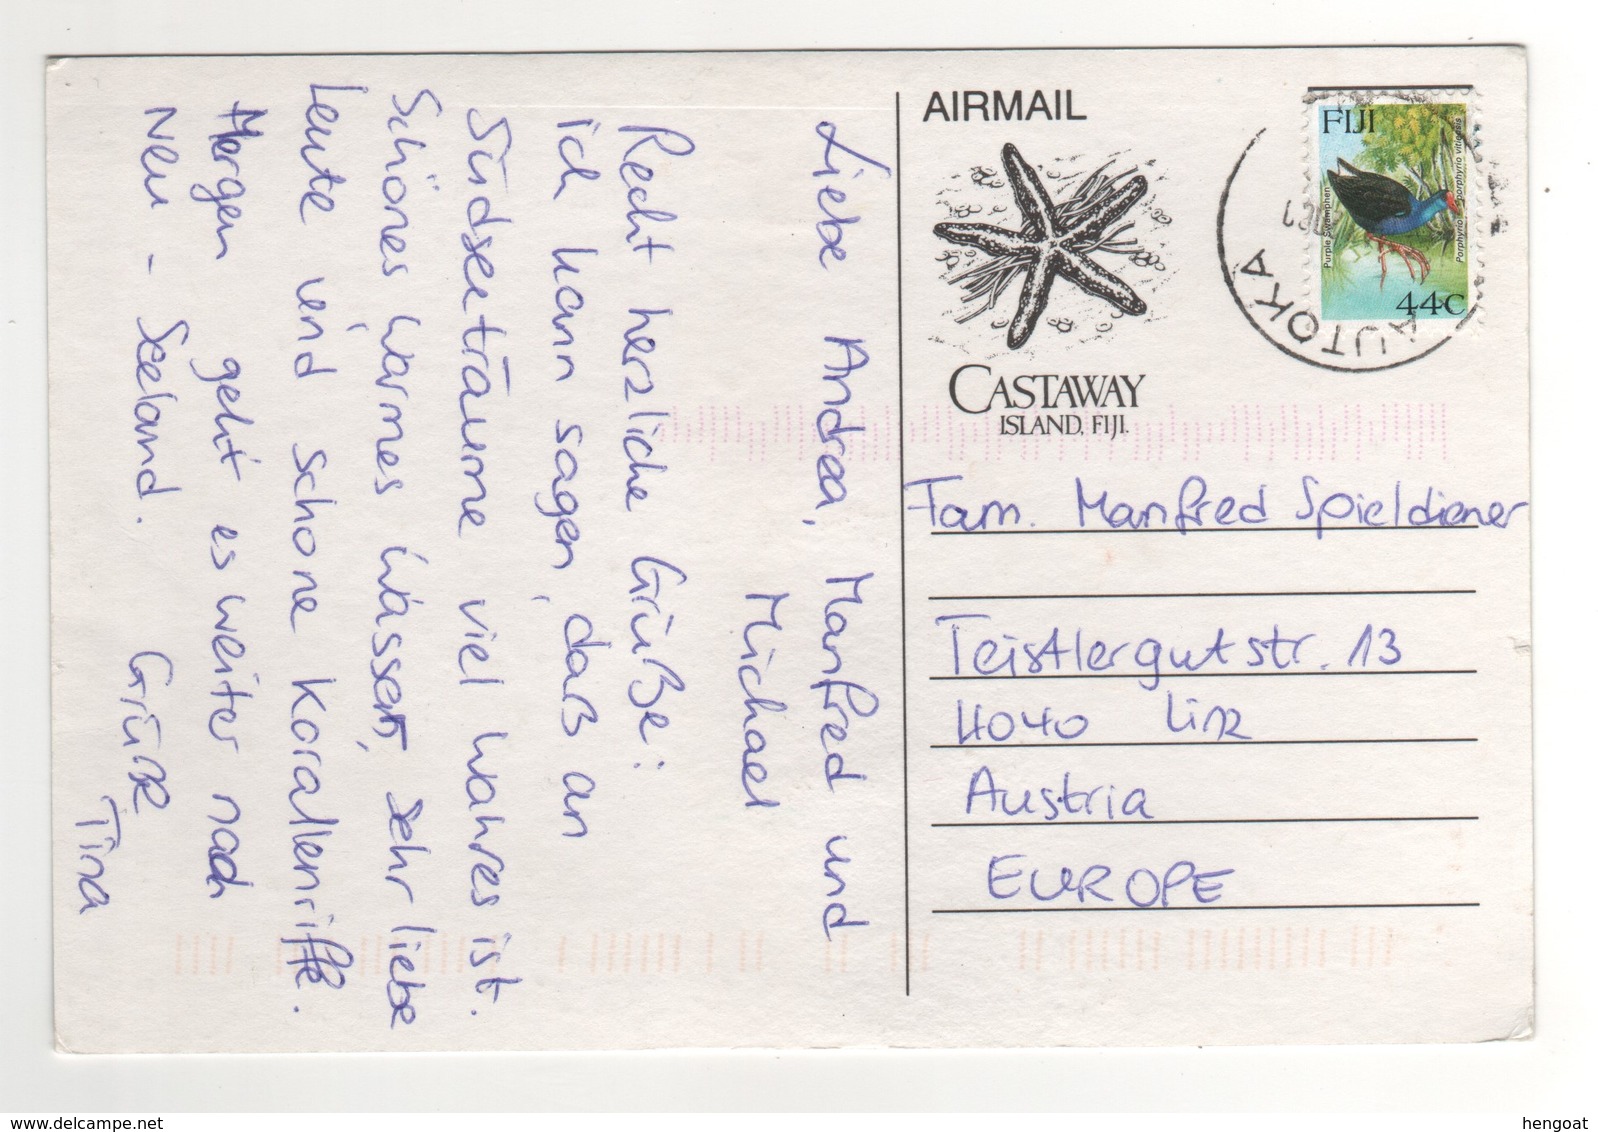 AIRMAIL
CASTAWAY
ISLAND, FIJI.
FIJI
Purple Swamphen
Porphyrio porphyrio vitiensis
44c
AUTOKA
Liebe Andrea, Manfred und
Michael
Recht herzliche Grüße:
ich kann sagen, daß an
Südseeträume viel wahres ist.
Schönes warmes Wasser, sehr liebe
Leute und schöne Korallenriffe.
Morgen geht es weiter nach
Neu - Seeland.
Grüße
Tina
Fam. Manfred Spieldiener
Teistlergutstr. 13
4040 Linz
Austria
EUROPE
www.delcampe.net
hengoat